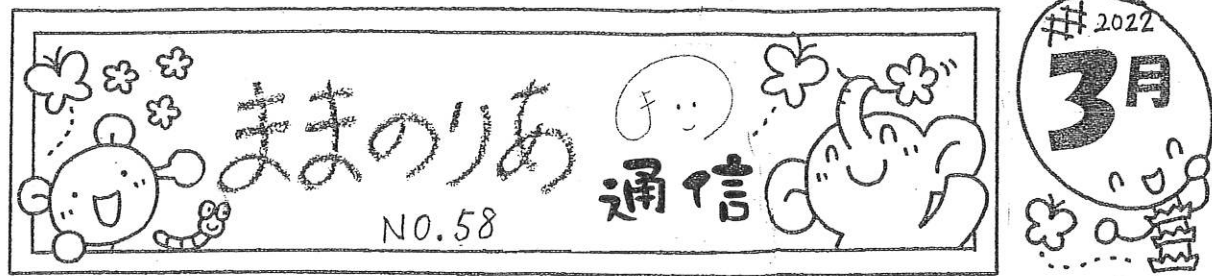 ままのりあ
通信
NO.58
#2022
3月